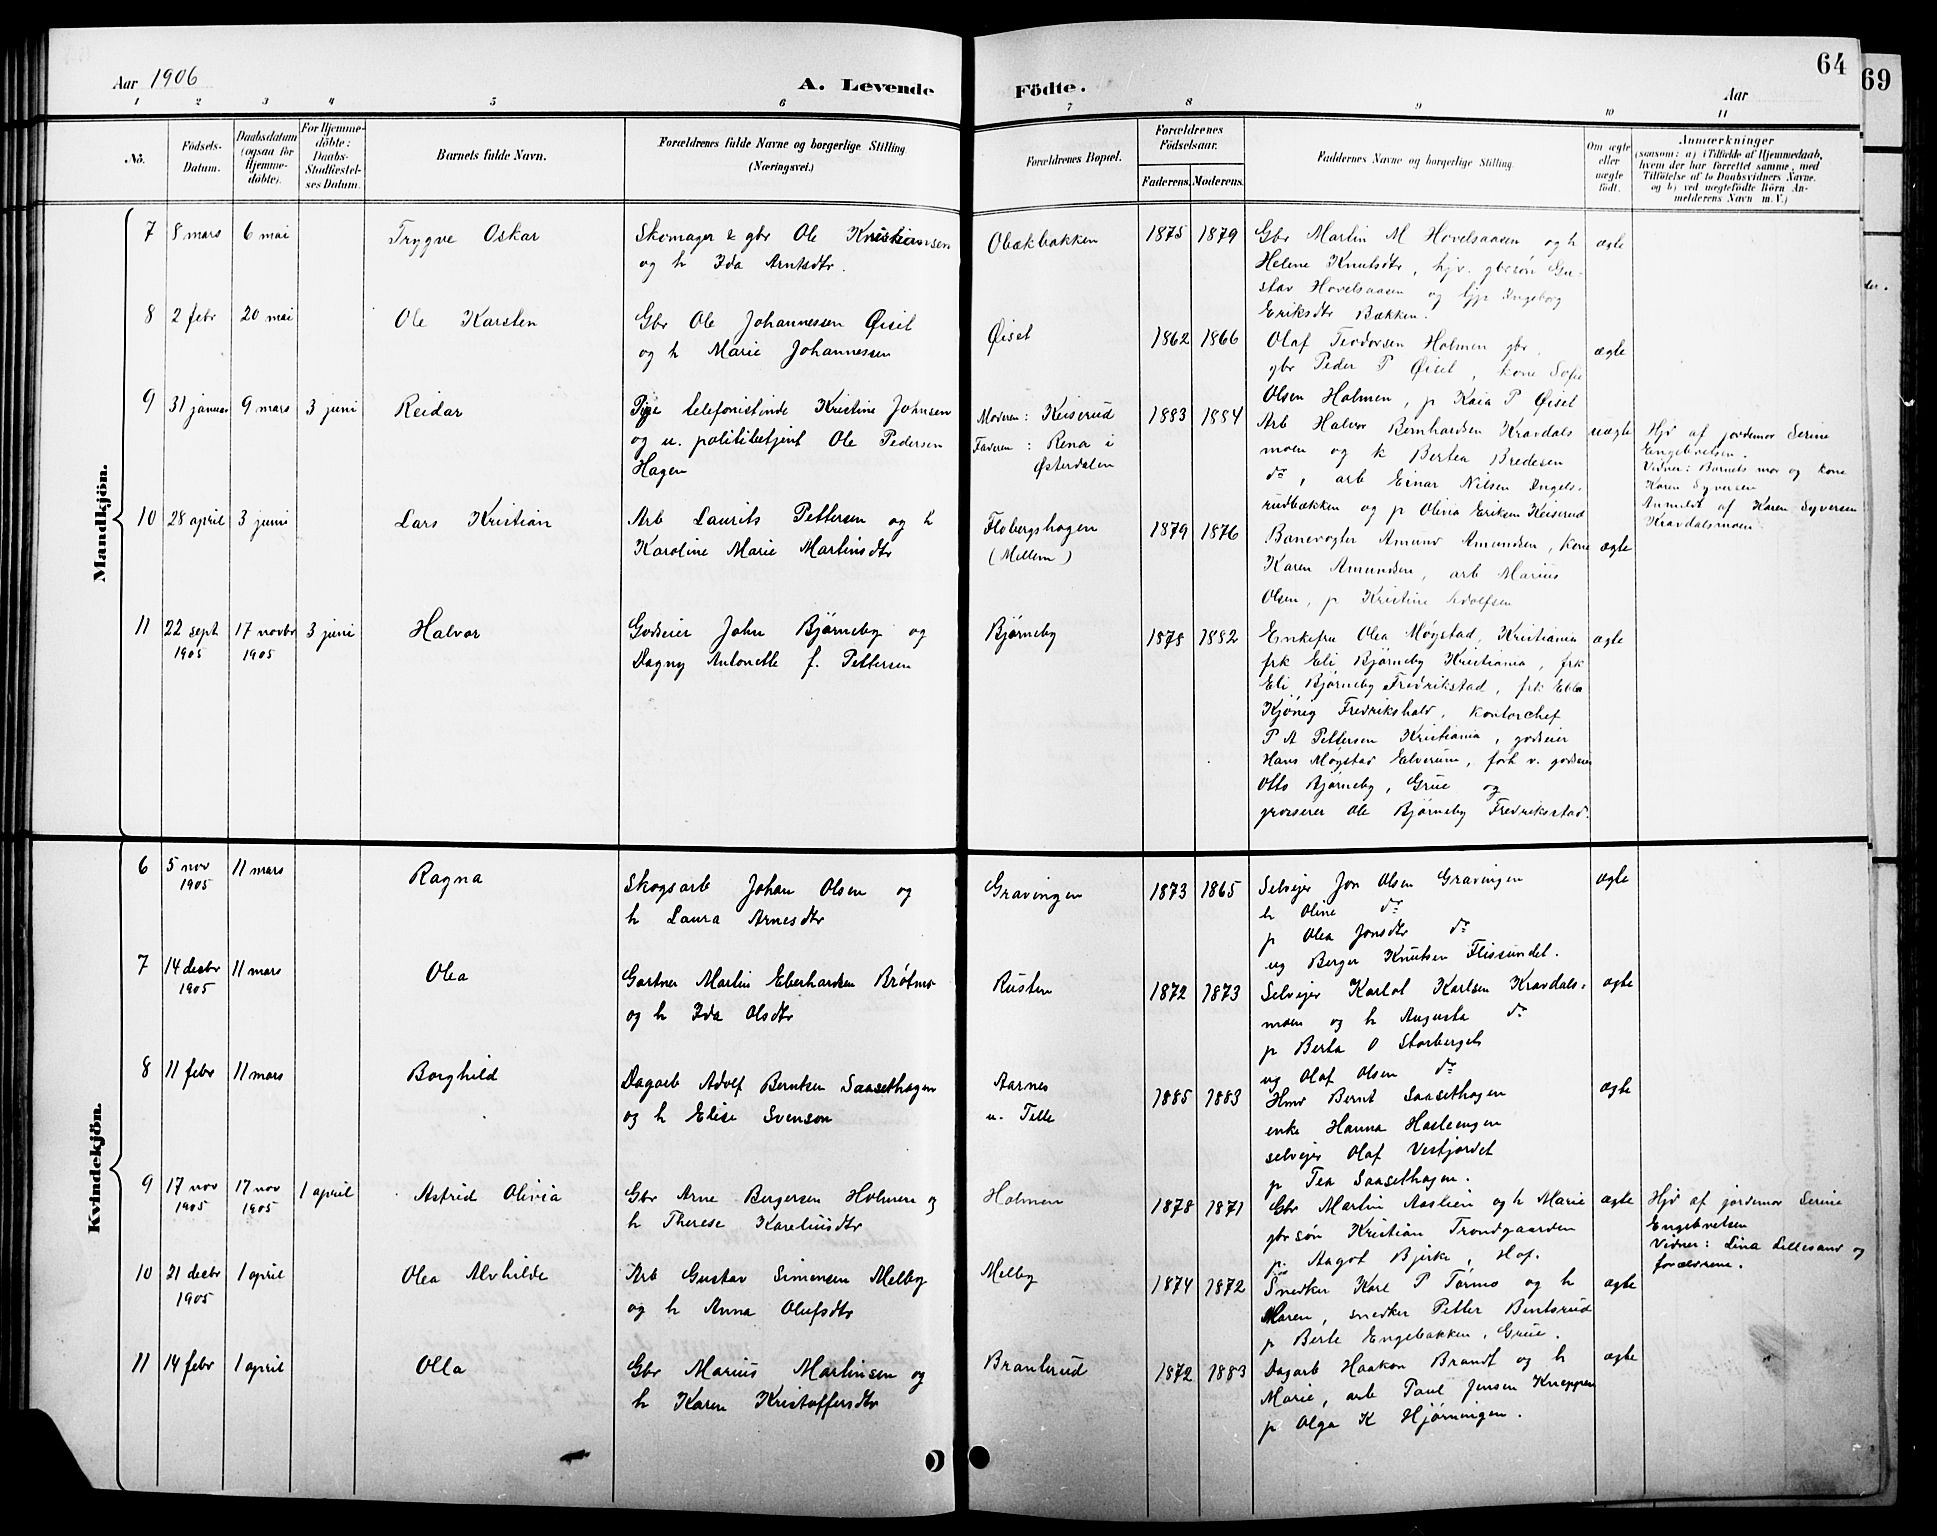 Aar 1906
A. Levende Födte.
Aar
64
69
1 2 3 4 5 6 7 8 9 10 11
No.
Födsels-
Datum.
Daabsdatum
(ogsaa for
Hjemme-
döbte).
For Hjemme-
döbte:
Daabs-
Stadfæstel-
ses Datum.
Barnets fulde Navn.
Forældrenes fulde Navne og borgerlige Stilling
(Næringsvei.)
Forældrenes Bopæl.
Forældrenes
Födselsaar.
Faderens. Moderens.
Faddernes Navne og borgerlige Stilling.
Om ægte
eller
uægte
født.
Anmærkninger
(saasom: a) i Tilfælde af Hjemmedaab,
hvem der har forrettet samme, med
Tilföielse af to Daabsvidners Navne.
og b) ved uægtefödte Börn An-
melderens Navn m. V.)
Mandkjön.
7 8 mars 6 mai Trygve Oskar
Skomager & gbr Ole Kristiansen
og h Ida Arntsdtr.
Obækbakken 1875 1879
Gbr Martin M Hovelsaasen og h
Helene Knutsdtr, hjv. gbrsøn Gu-
stav Hovelsaasen og pjp Ingeborg
Eriksdtr Bækken.
ægte
8 2 febr 20 mai Ole Karsten
Gbr Ole Johannessen Øiset
og h Marie Johannessen
Øiset 1862 1866
Olaf Teodorsen Holmen gbr,
gbr Peder P Øiset, kone Sofie
Olsen Holmen, p Kaia P Øiset
ægte
9 31 januar 9 mars 3 juni Reidar
Pige telefonistinde Kristine Johnsen
og u. politibetjent Ole Pedersen
Hagen
Moderen: Keiserud
Faderen: Rena i
Østerdalen
1883 1884
Arb Halvor Bernhardsen Kravdals
moen og k Bertea Bredesen
do, arb Einar Nilsen Ingels-
rudbækken og p Olivia Eriksen Keiserud
uægte
Hjd af jordemor Serine
Engebretsen.
Vidner: Barnets mor og kone
Karen Syversen
Anmeldt af Karen Syversen
Kravdalsmoen
10 28 april 3 juni Lars Kristian
Arb Laurits Pettersen og h
Karoline Marie Martinsdtr
Flobergshagen
(Mellem)
1879 1876
Banevogter Amund Amundsen, kone
Karen Amundsen, arb Marius
Olsen, p Kristine Adolfsen
ægte
11 22 sept 17 novbr 3 juni Halvor
1905 1905
Godseier John Bjørneby og
Dagny Antonette f. Pettersen
Bjørneby 1878 1882
Enkefru Olea Møystad, Kristiania
frk Eli Bjørneby Kristiania, frk
Eli Bjørneby Fredrikstad, frk Ebba
Kjönig Fredrikshald, kontorchef
P A Pettersen Kristiania, godseier
Hans Møystad Elverum, forh v. godseier
Otto Bjørneby, Grue og
grosserer Ole Bjørneby Fredriksstad.
ægte
Kvindekjön.
6 5 nov 11 mars Ragna
1905
Skogsarb Johan Olsen og
h Laura Arnesdtr
Gravingen 1873 1865
Selvejer Jon Olsen Gravingen
h Oline do
p Olea Jonsdtr do
ug Berger Knutsen Flissundet.
ægte
7 14 decbr 11 mars Olea
1905
Gartner Martin Eberhardsen Brøtmo
og h Ida Olsdtr
Rusten 1872 1873
Selvejer Karlot Karlsen Kravdals-
moen og h Augusta do
p Berta O Storberget
ug Olaf Olsen do
ægte
8 11 febr 11 mars Borghild
Dagarb Adolf Berntsen Saasethagen
og h Elise Svenson
Aarnes
u. Telle
1885 1883
Hmd Bernt Saasethagen
enke Hanna Hasleengen
selvejer Olaf Vestjordet
p Tea Saasethagen.
ægte
9 17 nov 17 nov 1 april Astrid Olivia
1905 1905
Gbr Arne Bergersen Holmen og
h Therese Kareliusdtr
Holmen 1878 1871
Gbr Martin Aaslien og h Marie
gbrsøn Kristian Trondgaarden
p. Aagot Bjerke, Hof.
ægte
Hjd af jordemor Serine
Engebretsen
Vidner: Lina Lillesand og
forældrene.
10 21 decbr 1 april Olea Alvhilde
1905
Arb Gustav Simensen Melby
og h Anna Olufsdtr
Melby 1874 1872
Snedker Karl P Tørmo og h
Maren, snedker Petter Bentsrud
p Berte Engebakken, Grue.
ægte
11 14 febr 1 april Olla
Gbr Marius Martinsen og
h Karen Kristoffersdtr
Branterud 1872 1883
Dagarb Haakon Brandt og h
Marie, arb Paul Jensen Knappen
p Olga K Hjørningen.
ægte